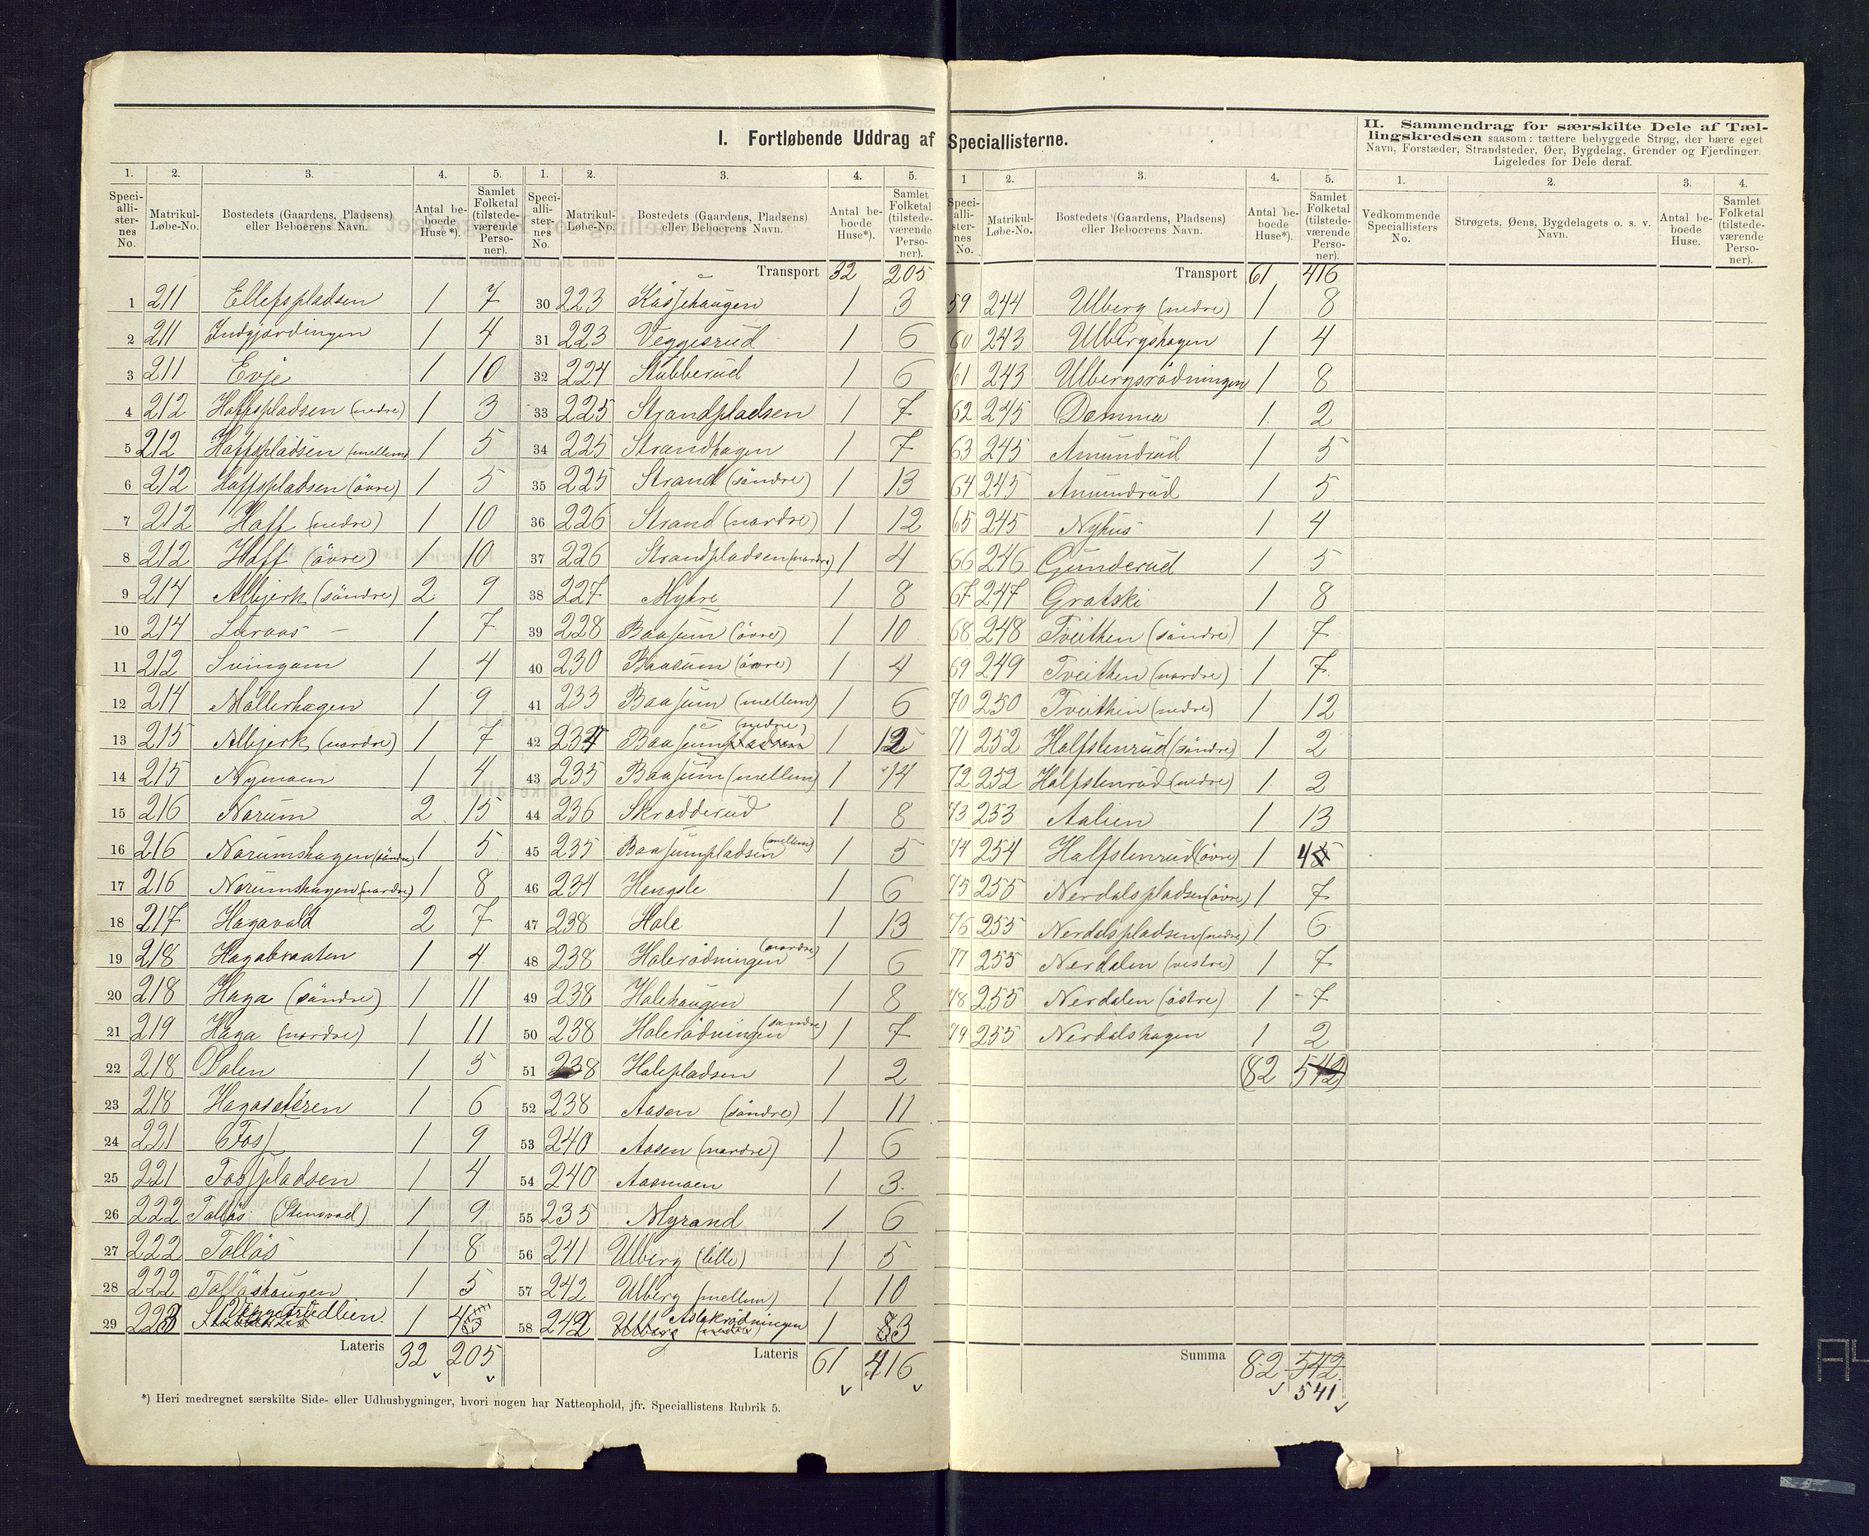 I. Fortløbende Uddrag af Speciallisterne.
II. Sammendrag for særskilte Dele af Tæl-
lingskredsen saasom: tættere bebyggede Strøg, der bære eget
Navn, Forstæder, Strandsteder, Øer, Bygdelag, Grender og Fjerdinger.
Ligeledes for Dele deraf.
1. 2. 3. 4. 5.
Speciallisternes No. Matrikul-Løbe-No. Bostedets (Gaardens, Pladsens) eller Beboerens Navn. Antal beboede Huse*). Samlet Folketal (tilstedeværende Personer).
1 211 Ellefspladsen 1 7
2 211 Indgjærdingen 1 4
3 211 Evje 1 10
4 212 Hoffspladsen (nedre) 1 3
5 212 Hoffspladsen (mellem) 1 5
6 212 Hoffspladsen (övre) 1 5
7 212 Hoff (nedre) 1 10
8 212 Hoff (övre) 1 10
9 214 Albjerk (söndre) 2 9
10 214 Laraas 1 7
11 212 Svingom 1 4
12 214 Möllerhagen 1 9
13 215 Albjerk (nordre) 1 7
14 215 Nymoen 1 4
15 216 Norum 2 15
16 216 Norumshagen (söndre) 1 5
17 216 Norumshagen (nordre) 1 8
18 217 Hagavold 2 7
19 218 Hagabraaten 1 4
20 218 Haga (söndre) 1 11
21 219 Haga (nordre) 1 11
22 218 Dalen 1 5
23 218 Hagasæteren 1 6
24 221 Foss 1 9
25 221 Fosspladsen 1 4
26 222 Tollös (Stensvad) 1 9
27 222 Tollös 1 8
28 222 Tolløshaugen 1 5
29 223 1 4
Lateris 32 205
1. 2. 3. 4. 5.
Speciallisternes No. Matrikul-Løbe-No. Bostedets (Gaardens, Pladsens) eller Beboerens Navn. Antal beboede Huse*). Samlet Folketal (tilstedeværende Personer).
Transport 32 205
30 223 Kässehaugen 1 3
31 223 Veggesrud 1 6
32 224 Stubberud 1 6
33 225 Strandpladsen 1 7
34 225 Strandhagen 1 7
35 225 Strand (söndre) 1 13
36 226 Strand (nordre) 1 12
37 226 Strandpladsen (nordre) 1 4
38 227 Myhre 1 8
39 228 Baasum (övre) 1 10
40 230 Baasum (övre) 1 4
41 233 Baasum (mellem) 1 6
42 234 Baasum (nedre) 1 12
43 235 Baasum (mellem) 1 14
44 236 Skrædderud 1 8
45 235 Baasumpladsen (mellem) 1 5
46 234 Hengsle 1 6
47 238 Hole 1 13
48 238 Holerödningen (nordre) 1 6
49 238 Holehaugen 1 8
50 238 Holerödningen (söndre) 1 7
51 238 Holepladsen 1 2
52 238 Aasen (söndre) 1 11
53 240 Aasen (nordre) 1 6
54 240 Aasmoen 1 3
55 235 Myrand 1 6
56 241 Ulberg (lille) 1 5
57 242 Ulberg (mellem) 1 10
58 242 Aslakrödningen 1 3
Lateris 61 416
1 2. 3. 4. 5.
Speciallisternes No. Matrikul-Løbe-No. Bostedets (Gaardens, Pladsens) eller Beboerens Navn. Antal beboede Huse*). Samlet Folketal (tilstedeværende Personer).
Transport 61 416
59 244 Ulberg (nedre) 1 8
60 243 Ulbergshagen 1 4
61 243 Ulbergsrödningen 1 8
62 245 Damma 1 2
63 245 Amundrud 1 5
64 245 Amundrud 1 5
65 245 Nyhus 1 4
66 246 Gunderud 1 5
67 247 Gratski 1 8
68 248 Tveithen (söndre) 1 7
69 249 Tveithen (nordre) 1 7
70 250 Tveithen (nedre) 1 12
71 252 Halfstenrud (söndre) 1 2
72 252 Halfstenrud (nedre) 1 2
73 253 Aalien 1 13
74 254 Halfstenrud (övre) 1 4
75 255 Nerdalspladsen (övre) 1 7
76 255 Nerdalspladsen (nedre) 1 6
77 255 Nerdalen (vestre) 1 7
78 255 Nerdalen (östre) 1 7
79 255 Nerdalshagen 1 2
(82 542)
Summa 82 542
541
1. 2. 3. 4.
Vedkommende Speciallisters No. Strøgets, Øens, Bygdelagets o. s. v. Navn. Antal beboede Huse. Samlet Folketal (tilstedeværende Personer).
*) Heri medregnet særskilte Side- eller Udhusbygninger, hvori nogen har Natteophold, jfr. Speciallistens Rubrik 5.